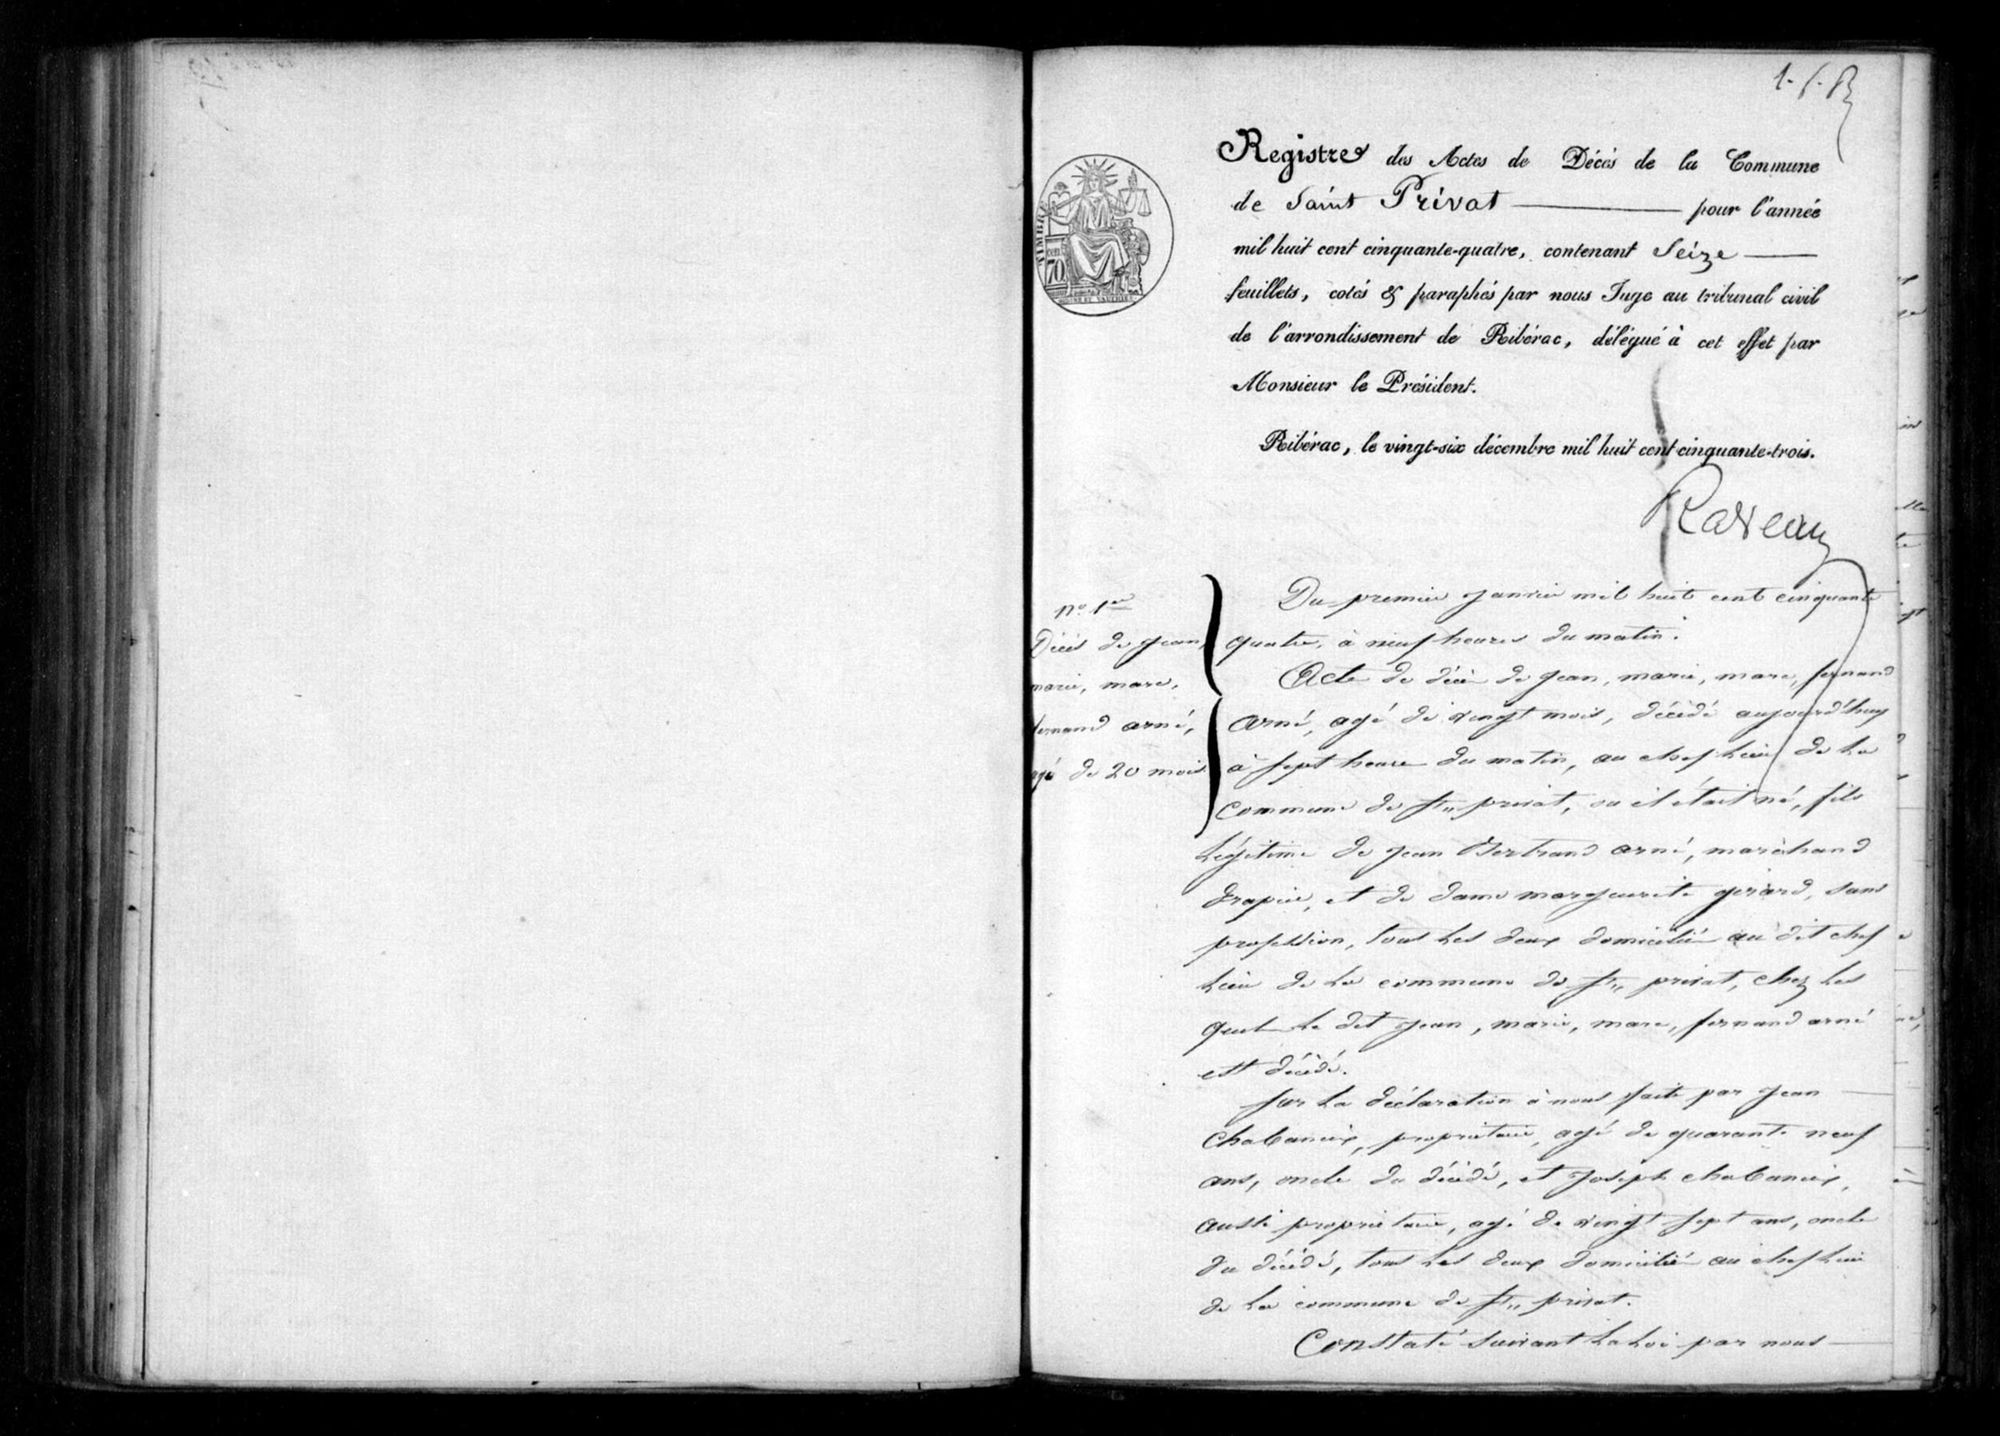 Registre des Actes de Décès de la Commune
de Saint Privat pour l'année
mil huit cent cinquante-quatre, contenant Seize
feuillets, cotés & paraphés par nous Juge au tribunal civil
de l'arrondissement de Ribérac, délégué à cet effet par
Monsieur le Président.
Ribérac, le vingt-six décembre mil huit cent cinquante-trois.
TIMBRE
70
n° 1er
Décès de jean,
marie, marc,
fernand arné,
agé de 20 mois
Du premier janvier mil huit cent cinquante
quatre, à neuf heures du matin.
Acte de décè de jean, marie, marc, fernand
arné, agé de vingt mois, décédé aujourd'huy
à sept heure du matin, au chef lieu de la
commune de St privat, ou il était né, fils
légitime de jean Bertrand arné, marchand
drapier, et de dame marguerite gérard, sans
profession, tous les deux domicilié au dit chef
lieu de la commune de St privat, chez les
quel le dit jean, marie, marc, fernand arné
est décédé.
Sur la déclaration à nous faite par jean
chabaneix, propriétaire, agé de quarante neuf
ans, oncle du décédé, et joseph chabaneix,
aussi propriétaire, agé de vingt sept ans, oncle
du décédé, tous les deux domicilié au chef lieu
de la commune de St privat.
Constaté suivant la loi par nous